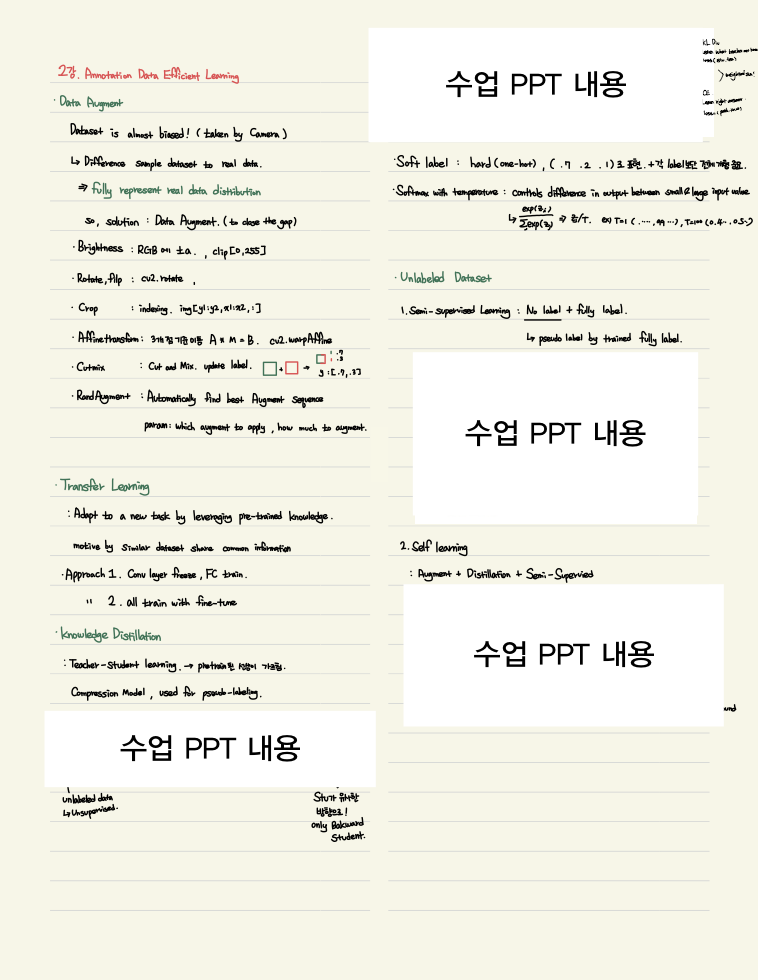 2강. Annotation Data Efficient Learning
· Data Augment
Dataset is almost biased! (taken by Camera)
↳ Difference sample dataset to real data.
⇒ fully represent real data distribution
so, solution : Data Augment. (to close the gap)
· Brightness : RGB에 ±a. , clip[0,255]
· Rotate, flip : cv2.rotate ,
· Crop : indexing. img[y1:y2, x1:x2, :]
· Affine transfom : 3개 점 기준 이동 A × M = B. cv2.warpAffine
· Cutmix : Cut and Mix. update label. □ + □ → □ : .7 : .3
y : [.7, .3]
· RandAugment : Automatically find best Augment sequence
param : which augment to apply , how much to augment.
· Transfer Learning
: Adapt to a new task by leveraging pre-trained knowledge.
motive by similar dataset share common information
· Approach 1. Conv layer freeze, FC train.
" 2. all train with fine-tune
· Knowledge Distillation
: Teacher-Student learning. → pretrain된 사람이 가르침.
Compression Model , used for pseudo-labeling.
수업 PPT 내용
unlabeled data
↳ Unsupervised.
Stu가 유사한
방향으로!
only Bakward
Student.
수업 PPT 내용
KL Div
CE
· Soft label : hard (one-hot) , ( .7 .2 .1)로 표현. + 각 label보단 전체 경향 중요.
· Softmax with temperature : controls difference in output between small & large input value
↳ exp(zᵢ) / Σexp(zⱼ) ⇒ 을/T. ex) T=1 ( ....., 99 ...), T=100 (0.4.. , 0.5..)
· Unlabeled Dataset
1. Semi-supervised Learning : No label + fully label.
↳ pseudo label by trained fully label.
수업 PPT 내용
2. Self learning
: Augment + Distillation + Semi-Supervied
수업 PPT 내용